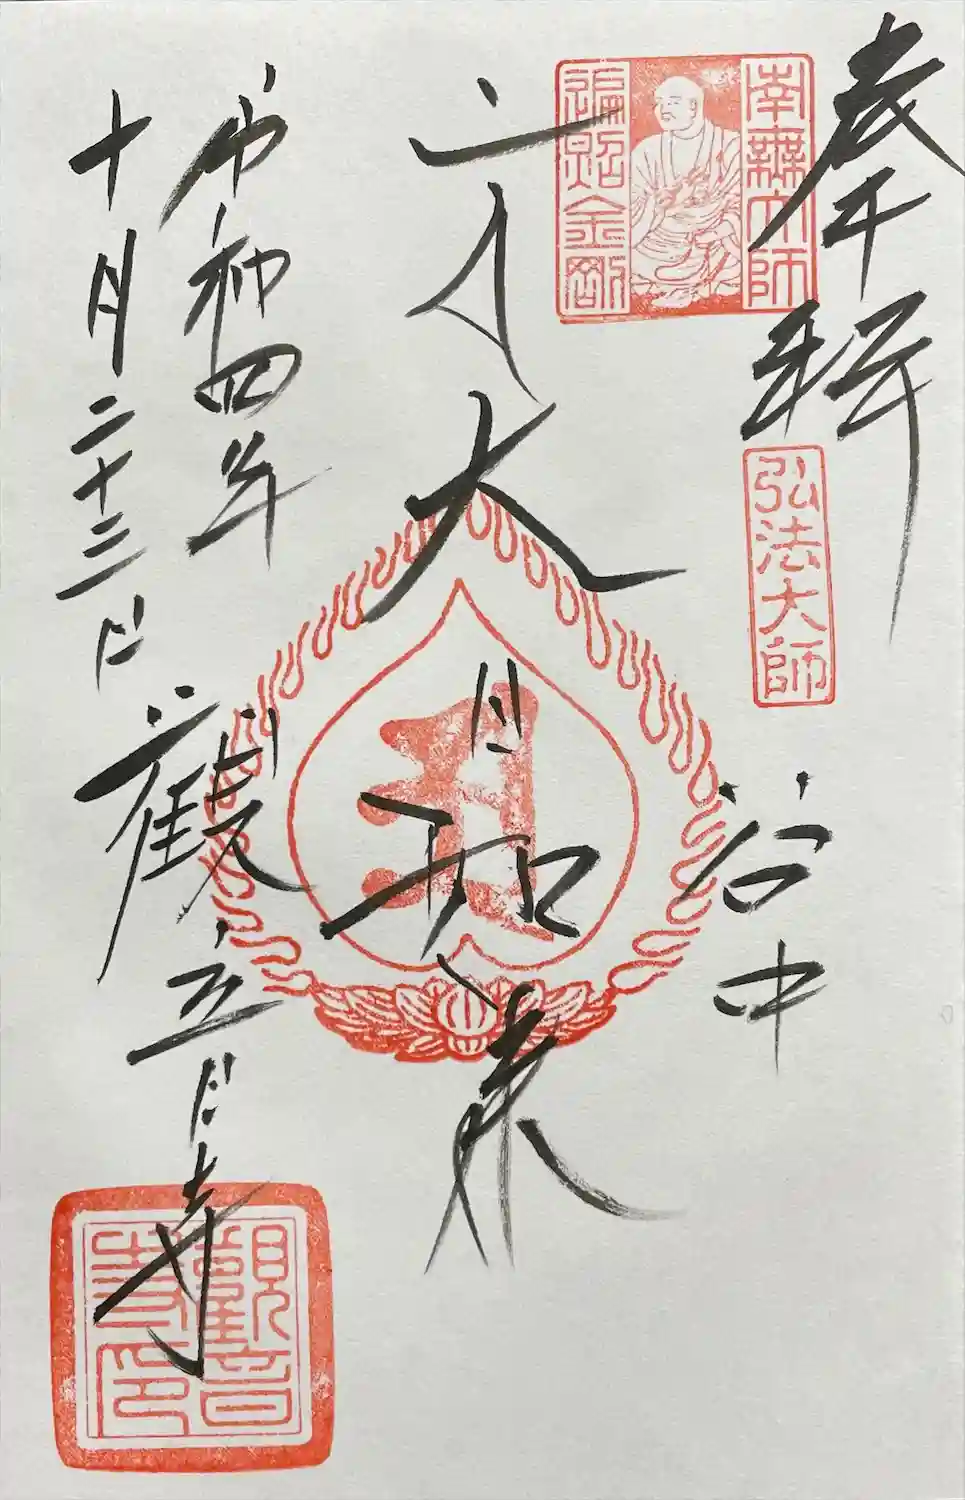 奉拝
南無大師
遍照金剛
弘法大師
谷中
大日如来
令和四年
十月二十三日
観音寺
觀音
寺印